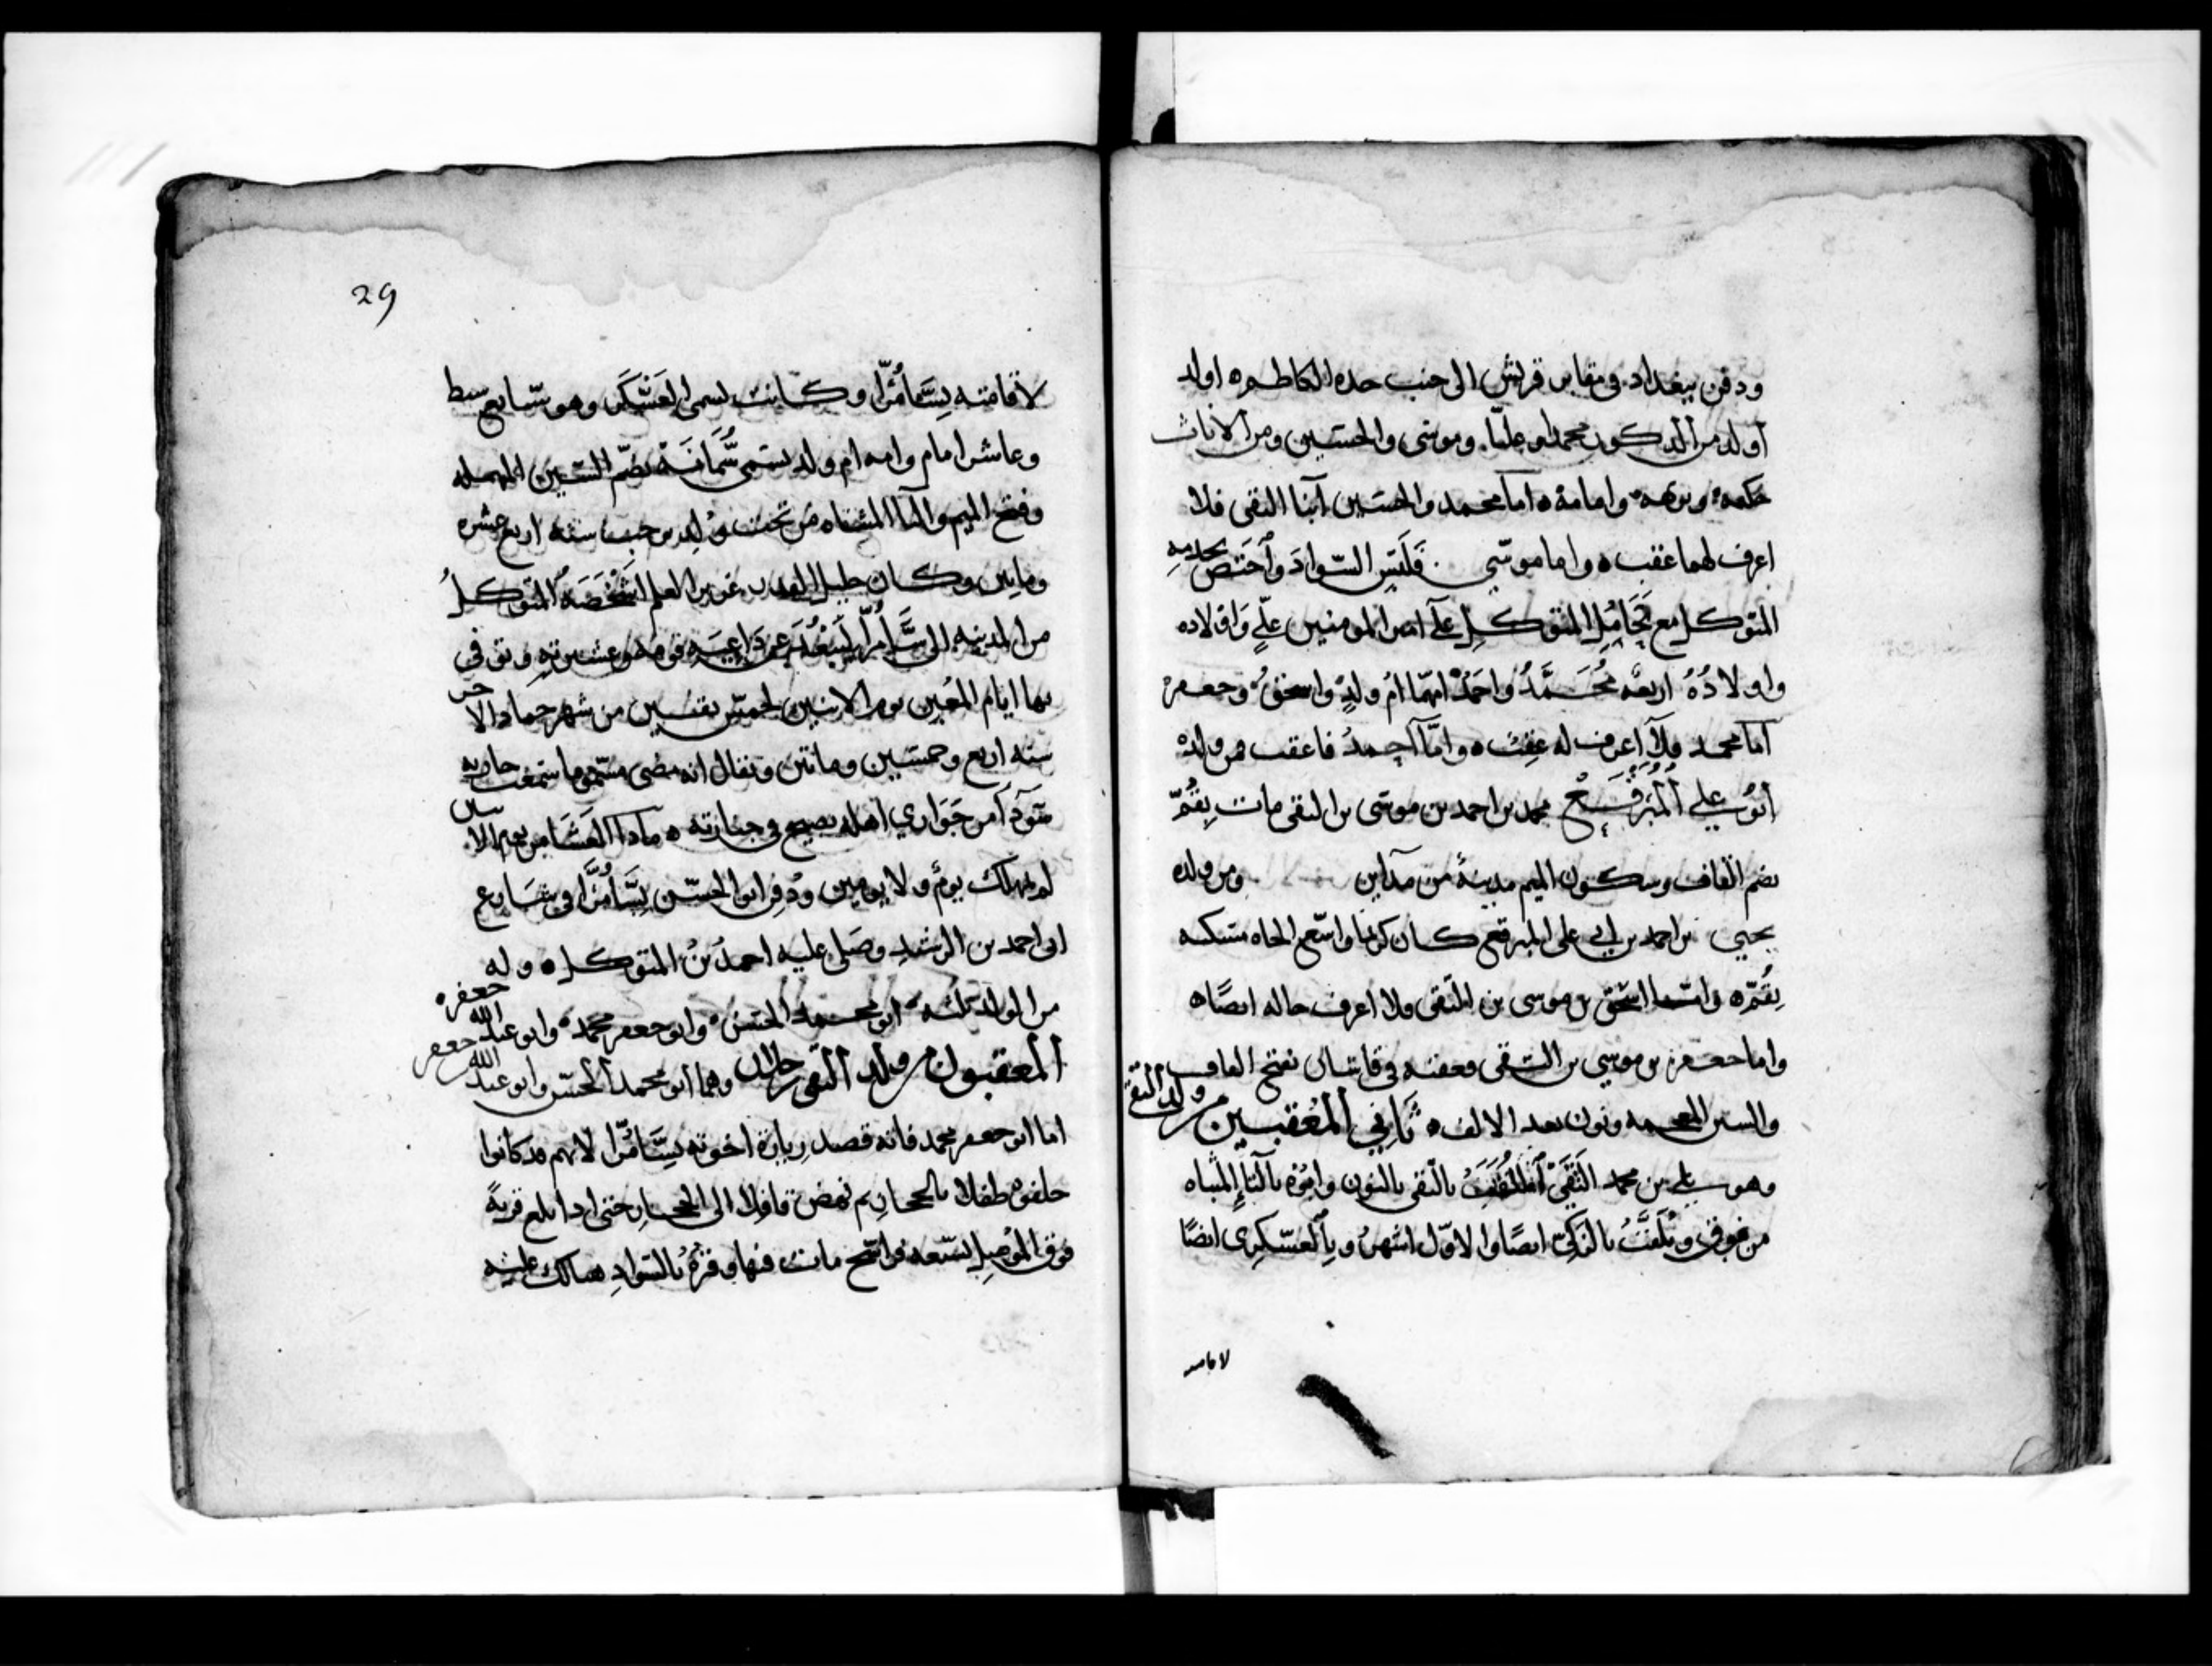 ودفن ببغداد في مقابر قريش الى جنب جده الكاظم ه اولد
اولد من الذكور محمدا وعليّا. وموسى والحسين ومن الاناث
حكمه وبرهه وامامة ه اما محمد والحسين ابنا التقى فلا
اعرف لهما عقب ه واما موسى فلبس السواد واختص بخدمه
المتوكل مع تحامل المتوكل على امير المومنين علي واولاده
واولاده اربعه محمد واحمد امهما ام ولد واسحق وجعفر
اما محمد فلا اعرف له عقب ه واما احمد فاعقب من ولده
ابو علي المبرقع محمد بن احمد بن موسى بن التقى مات بقم
بضم القاف وسكون الميم مدينة من مداين ومن ولده
يحيى بن احمد بن ابي على المبرقع كان كريما واسع الجاه مسكنه
بقم ه واما اسحق بن موسى بن التقى فلا اعرف حاله ايضا ه
واما جعفر بن موسى بن التقى فعقبه في قاشان بفتح القاف
والشين المعجمه ونون بعد الالف ه ثاني المعقبين من ولد التقى
وهو على بن محمد التقى الملقب بالنقى بالنون وابوه بالتاء المثناه
من فوق ويلقب بالزكي ايضا والاول اشهر وبالعسكرى ايضا
لاقامته
29
لاقامته بسامرا وكانت تسمى العسكر وهو سابع سبط
وعاشر امام وامه ام ولد تسمى سمانه بضم السين المهمله
وفتح الميم والـ المثناه من تحت ولد رجب سنه اربع عشره
وماتين وكان جليل القدر غزير العلم اشخصه المتوكل
من المدينه الى سامرا ليبعد عن قومه وعشيرته وتوفي
بها ايام المعتز يوم الاثنين لخمس بقين من شهر جمادى الاخر
سنه اربع وخمسين وماتين ويقال انه مضى مسموما سمعت جاريه
سودا من جواري اهله تصيح في جنازته ه ماذا لقينا من يوم الاثنين
لم يهلك يوم ولا يومين ودفن ابو الحسن بسامرا في شارع
ابي احمد بن الرشيد وصلى عليه احمد بن المتوكل ه وله
من الولد ثلثه ابو محمد الحسن وابو جعفر محمد وابو عبد الله جعفر ه
المعقبون من ولد النقى رجلان وهما ابو محمد الحسن وابو عبد الله جعفر
اما ابو جعفر محمد فانه قصد زيارة اخوته بسامرا لانهم قد كانوا
خلفوه طفلا بالحجاز ثم نهض قافلا الى الحجاز حتى اذا بلغ قرية
فوق الموصل بسبعه فراسخ مات فيها وقبره بالسواد هنالك عليه